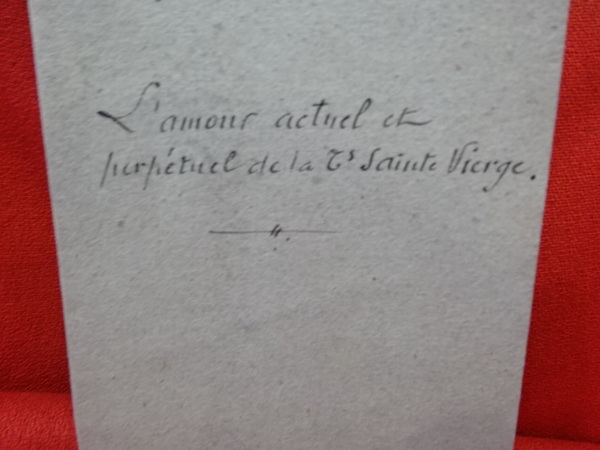 L'amour actuel et
perpétuel de la Ts Sainte Vierge.